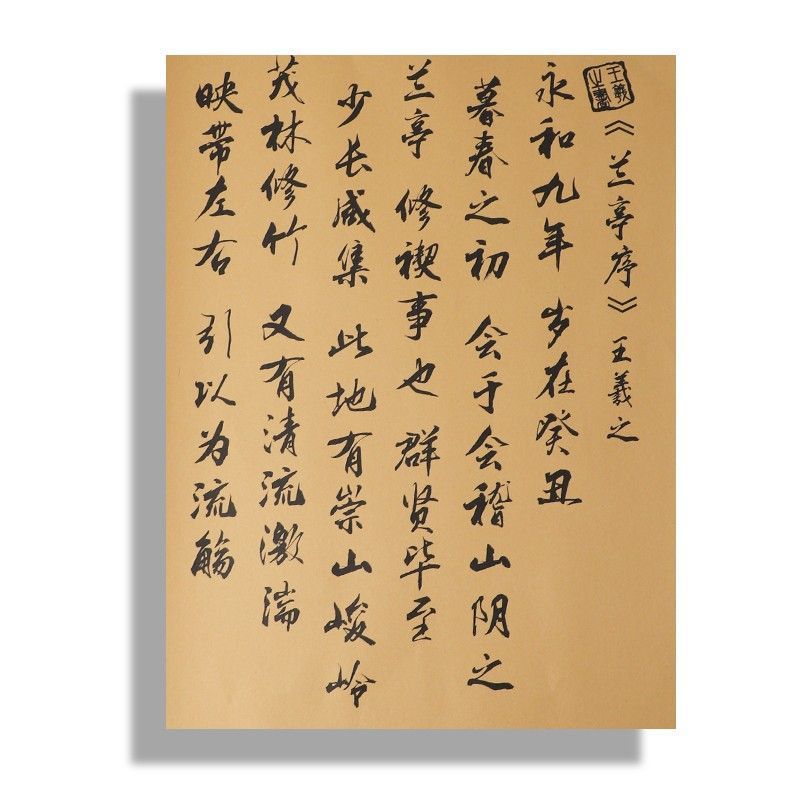 王羲之
《兰亭序》王羲之
永和九年 岁在癸丑
暮春之初 会于会稽山阴之
兰亭 修禊事也 群贤毕至
少长咸集 此地有崇山峻岭
茂林修竹 又有清流激湍
映带左右 引以为流觞